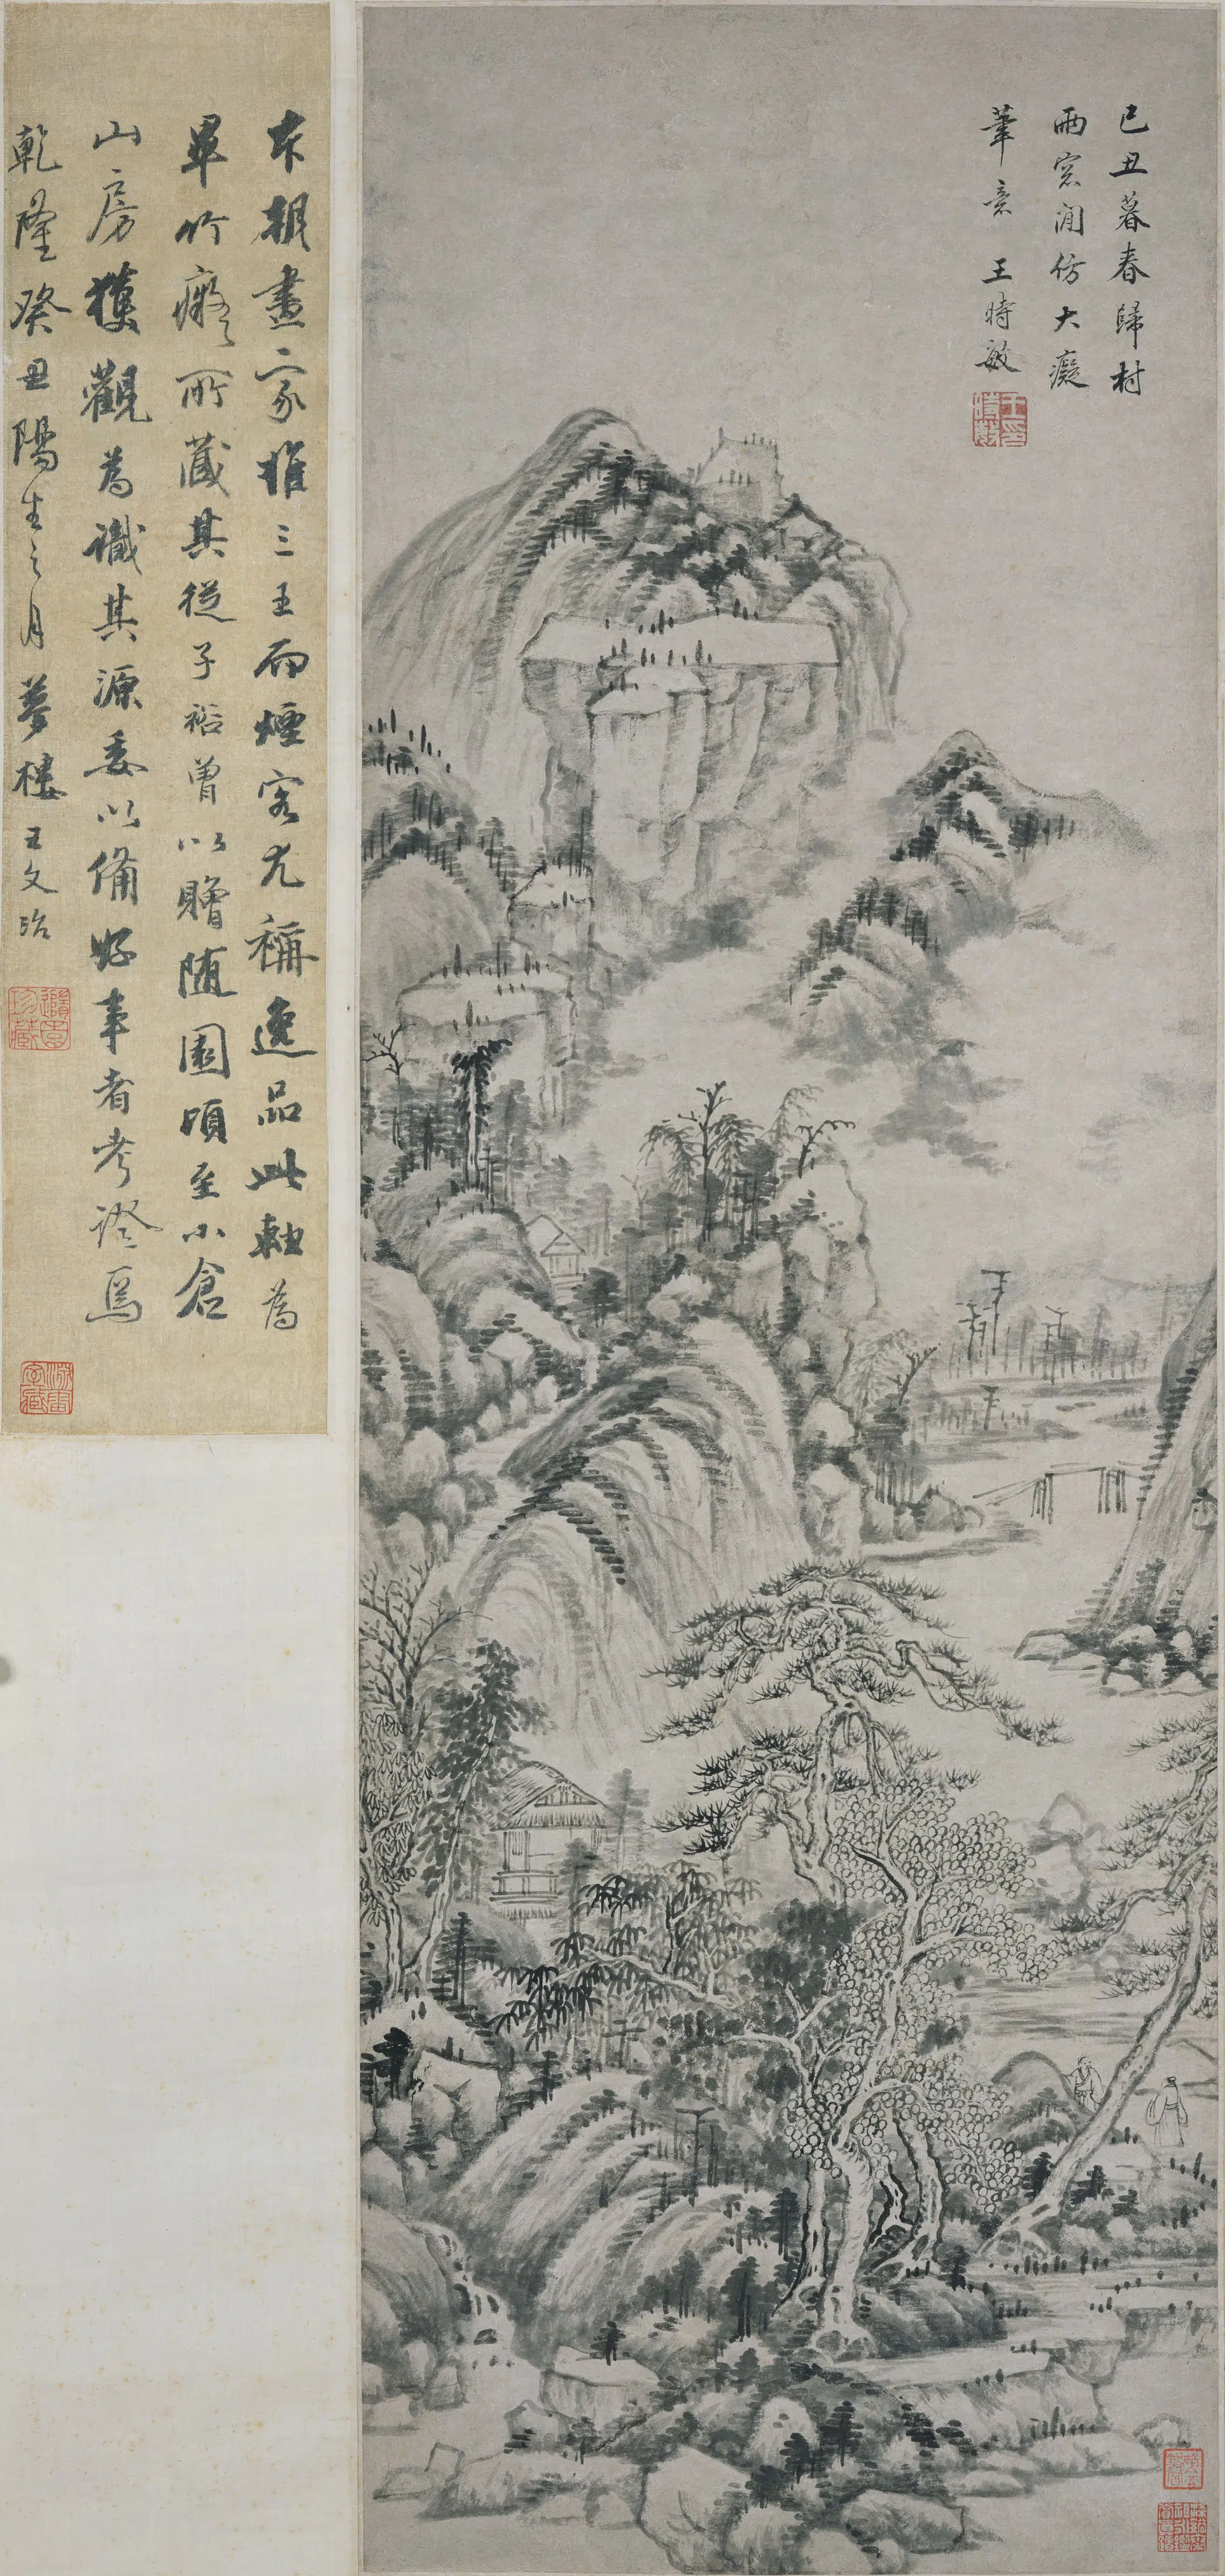 己丑暮春歸村
雨窓閒仿大癡
筆意 王時敏
王時敏印
本朝畫家推三王而煙客尤稱逸品此軸為
畢竹癡所藏其從子裕曾以贈隨園頃至小倉
山房獲觀為識其源委以備好事者考證焉
乾隆癸丑陽生之月夢樓王文治
隨園珍藏